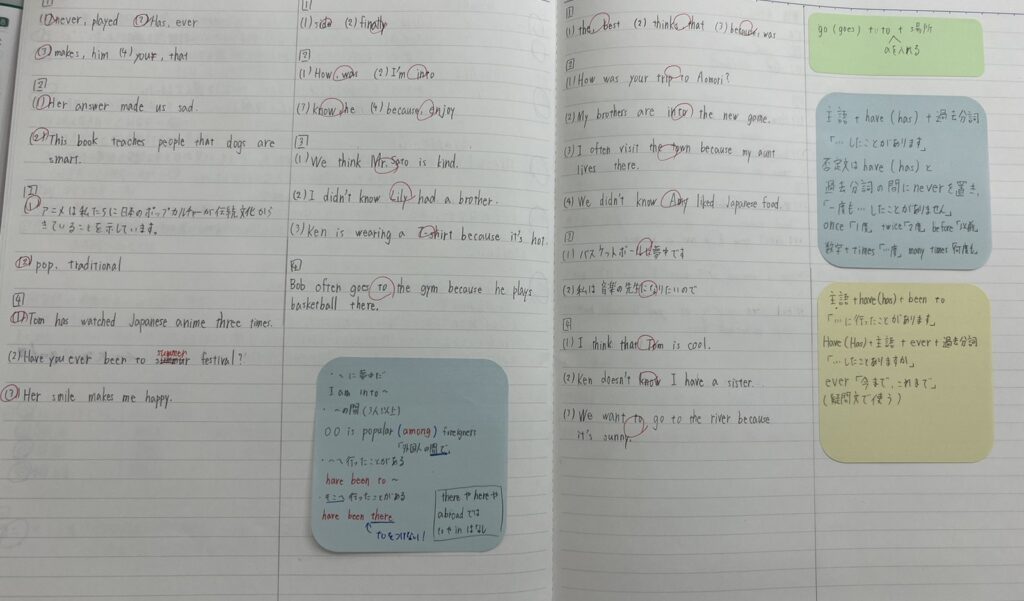 1
(1) never, played (2) Has, ever
(3) makes, him (4) your, that
2
(1) Her answer made us sad.
(2) This book teaches people that dogs are
smart.
3
(1) アニメは私たちに日本のポップカルチャーが伝統文化から
きていることを示しています。
(2) pop, traditional
4
(1) Tom has watched Japanese anime three times.
(2) Have you ever been to summer festival?
(3) Her smile makes me happy.
1
(1) side (2) finally
2
(1) How, was (2) I'm into
(3) know, he (4) because, enjoy
3
(1) We think Mr. Sato is kind.
(2) I didn't know Lily had a brother.
(3) Ken is wearing a T-shirt because it's hot.
4
Bob often goes to the gym because he plays
basketball there.
・〜に夢中だ
I am into 〜
・〜の間(3人以上)
○○ is popular (among) foreigners
「外国人の間で」
・〜へ行ったことがある
have been to 〜
・そこへ行ったことがある
have been there
toをつけない!
there や here や
abroad では
to や in はなし
1
(1) the, best (2) thinks, that (3) because, was
2
(1) How was your trip to Aomori?
(2) My brothers are into the new game.
(3) I often visit the town because my aunt
lives there.
(4) We didn't know Amy liked Japanese food.
3
(1) バスケットボールに夢中です
(2) 私は音楽の先生になりたいので
4
(1) I think that Tom is cool.
(2) Ken doesn't know I have a sister.
(3) We want to go to the river because
it's sunny.
go (goes) + to + 場所
aを入れる
主語 + have (has) + 過去分詞
「…したことがあります」
否定文は have (has) と
過去分詞の間に never を置き、
「一度も…したことがありません」
once「1度」 twice「2度」 before「以前」
数字 + times「…度」 many times「何度も」
主語 + have (has) + been to
「…に行ったことがあります」
Have (Has) + 主語 + ever + 過去分詞
「…したことありますか」
ever「今まで、これまで」
(疑問文で使う)